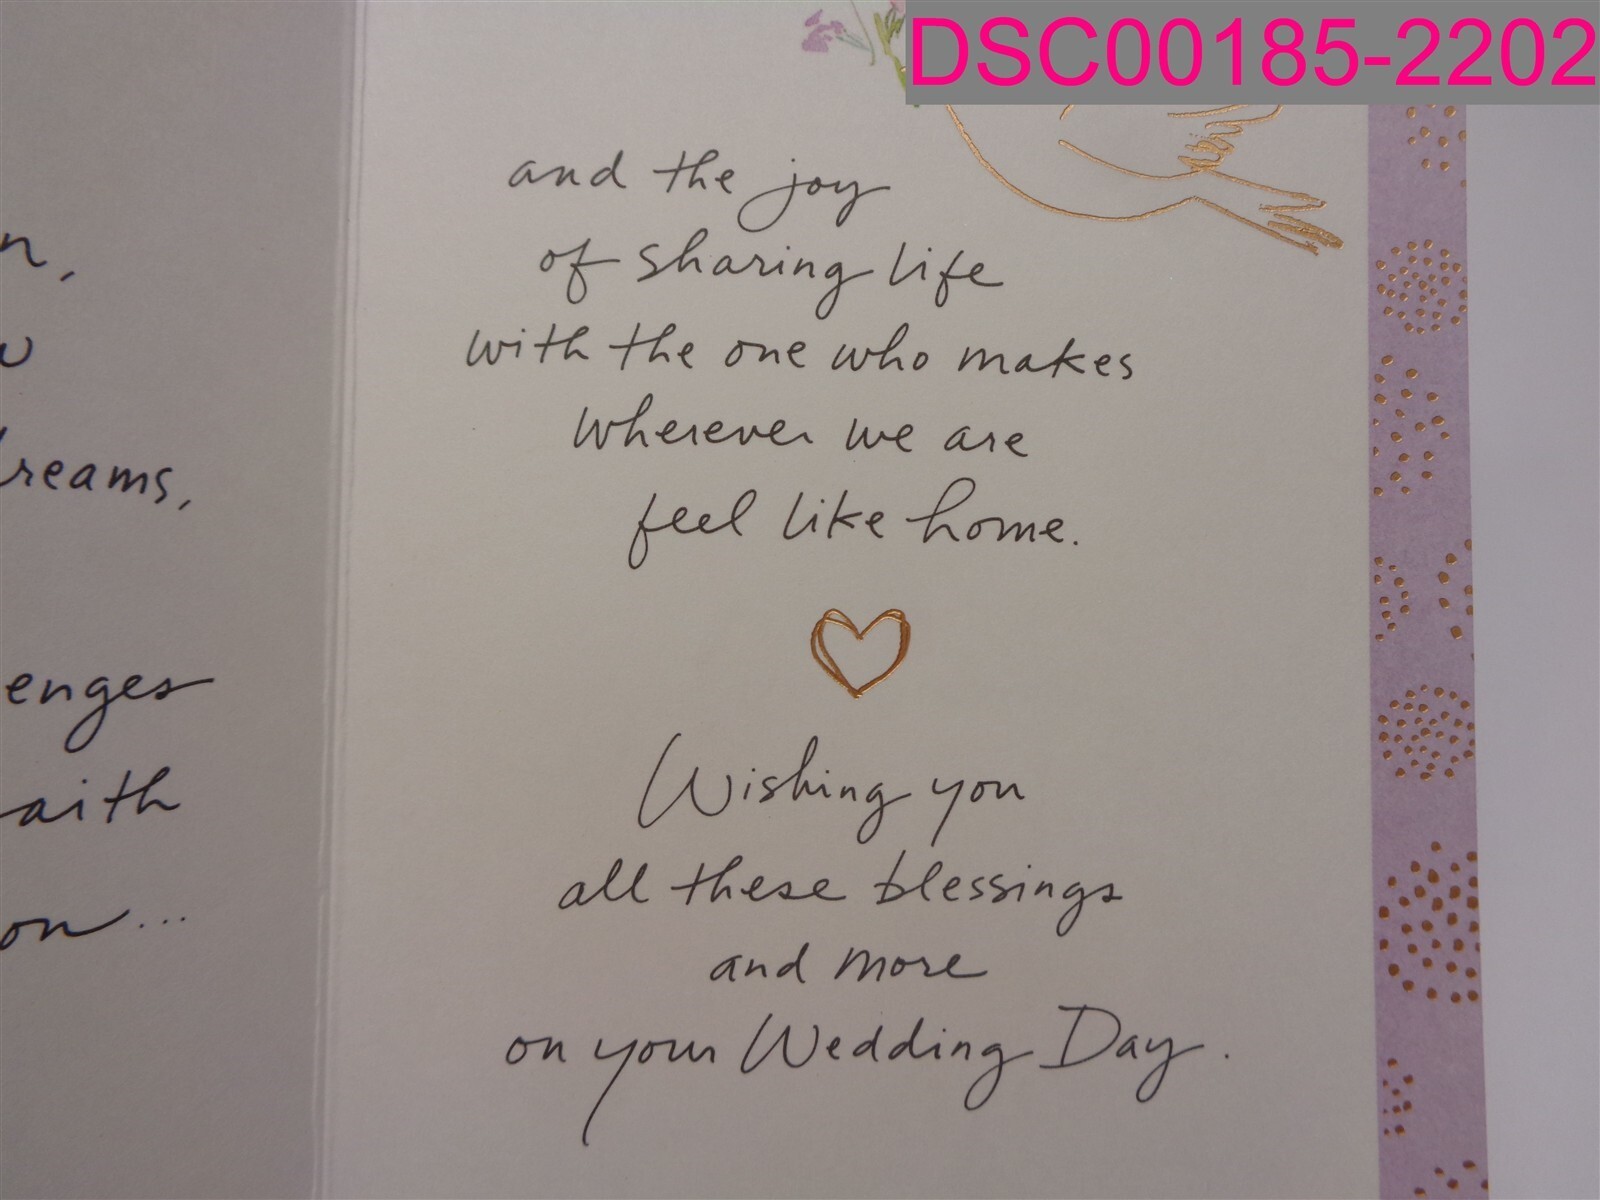 DSC00185-2202
and the joy
of sharing life
with the one who makes
wherever we are
feel like home.
Wishing you
all these blessings
and more
on your Wedding Day.